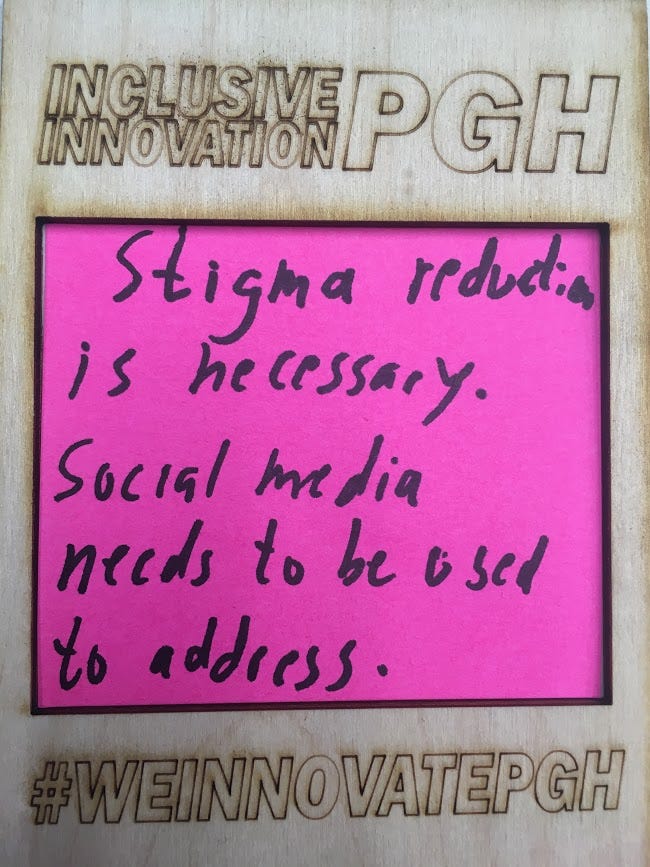 INCLUSIVE
INNOVATION PGH
Stigma reduction
is necessary.
Social media
needs to be used
to address.
#WEINNOVATEPGH